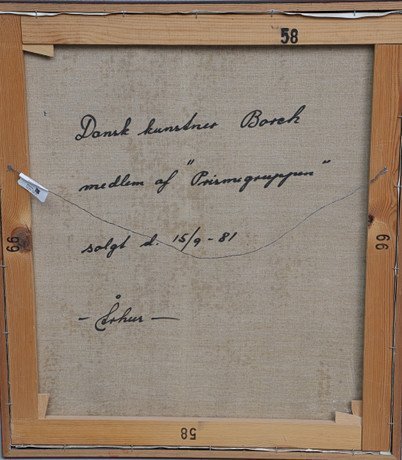 58
Dansk kunstner Borch
medlem af "Prismegruppen"
66
solgt d. 15/9-81
66
- Århus -
58